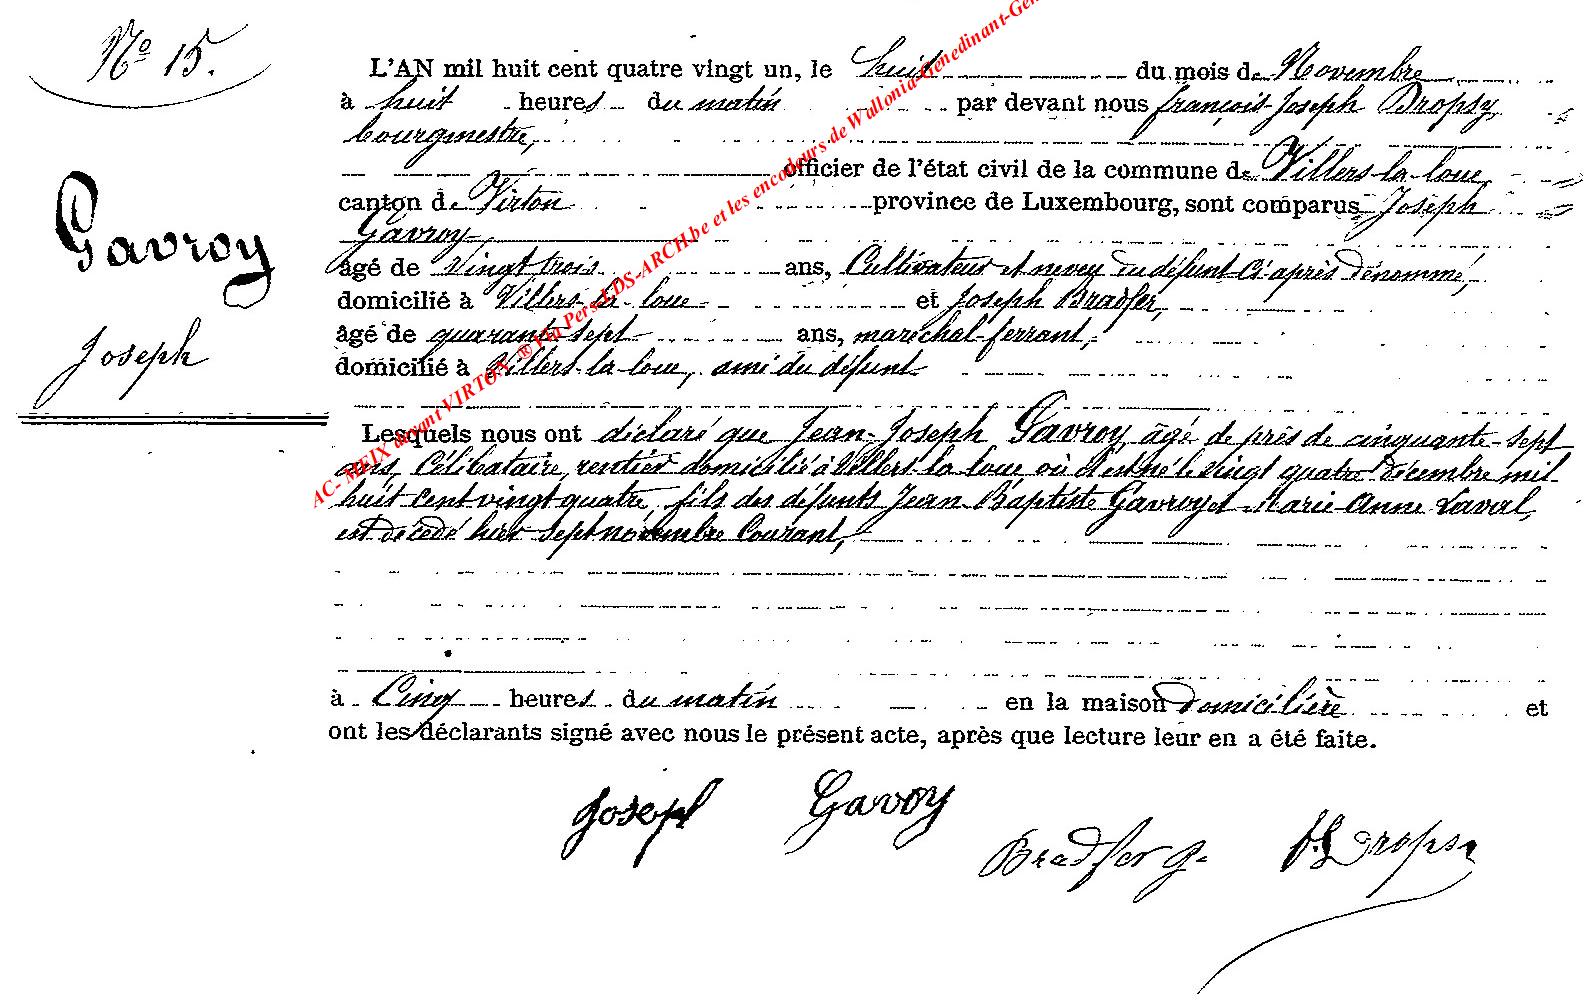 Nº 15.
Gavroy
Joseph
L'AN mil huit cent quatre vingt un, le huit du mois de Novembre
à huit heures du matin par devant nous françois-Joseph Dropsy,
bourgmestre,
officier de l'état civil de la commune de Villers-la-loue
canton de Virton province de Luxembourg, sont comparus Joseph
Gavroy
âgé de vingt trois ans, Cultivateur et neveu du défunt ci après dénommé,
domicilié à Villers-la-loue et Joseph Bradfer,
âgé de quarante sept ans, maréchal-ferrant,
domicilié à Villers-la-loue, ami du défunt
Lesquels nous ont déclaré que Jean-Joseph Gavroy, âgé de près de cinquante-sept
ans, Célibataire, rentier domicilié à Villers-la-loue où il est né le vingt quatre décembre mil
huit cent vingt quatre, fils des défunts Jean-Baptiste Gavroy et Marie-Anne Laval,
est décédé hier sept novembre Courant,
à Cinq heures du matin en la maison domicilière et
ont les déclarants signé avec nous le présent acte, après que lecture leur en a été faite.
Joseph Gavoy
Bradfer J.
f.J Dropsy
AC-MEIX devant VIRTON ® Via Pers-LDS-ARCH.be et les encodeurs de Wallonia-Genedinant-Gen